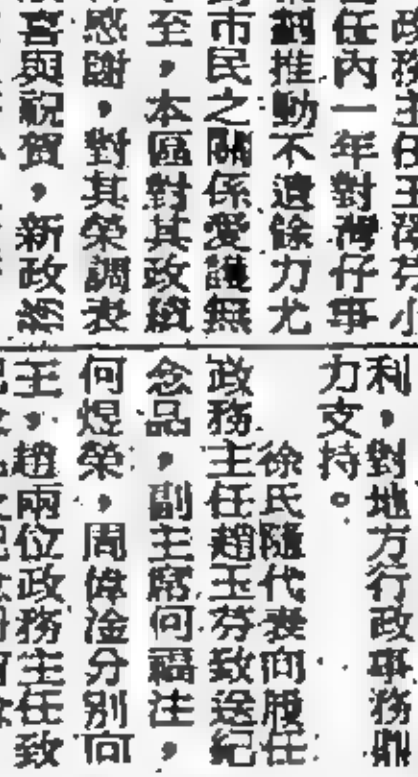 政務主任王𦶜芬小
任內一年對灣仔事
推動不遺餘力尤
市民之關係愛護無
至，本區對其政績
感謝，對其榮調表
喜與祝賀，新政務
利，對地方行政事務鼎
力支持。
徐氏隨代表向履任
政務主任趙玉芬致送紀
念品，副主席何福注，
何焜榮，周偉淦分別向
王，趙兩位政務主任致